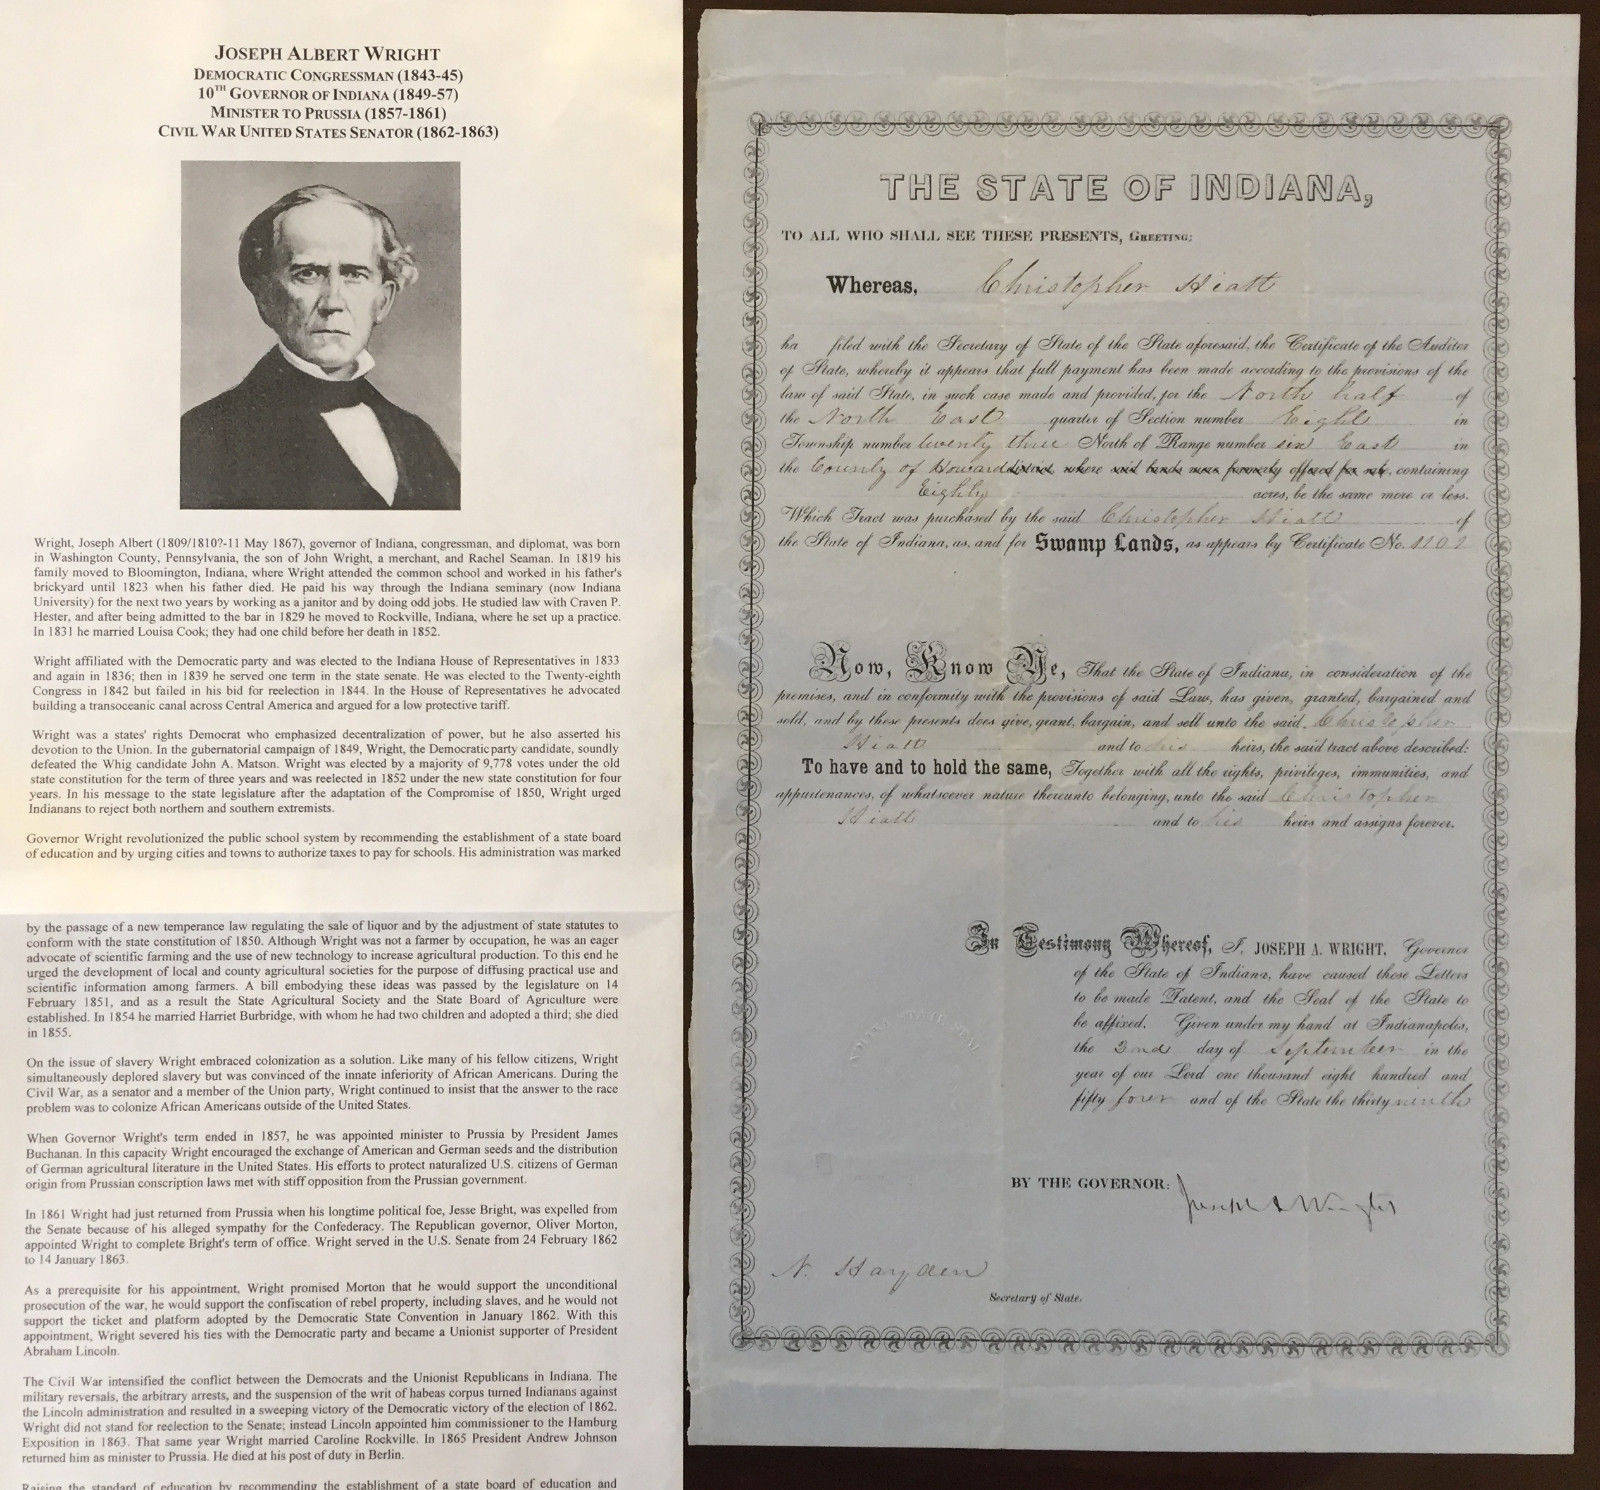 JOSEPH ALBERT WRIGHT
DEMOCRATIC CONGRESSMAN (1843-45)
10TH GOVERNOR OF INDIANA (1849-57)
MINISTER TO PRUSSIA (1857-1861)
CIVIL WAR UNITED STATES SENATOR (1862-1863)
Wright, Joseph Albert (1809/1810?-11 May 1867), governor of Indiana, congressman, and diplomat, was born
in Washington County, Pennsylvania, the son of John Wright, a merchant, and Rachel Seaman. In 1819 his
family moved to Bloomington, Indiana, where Wright attended the common school and worked in his father's
brickyard until 1823 when his father died. He paid his way through the Indiana seminary (now Indiana
University) for the next two years by working as a janitor and by doing odd jobs. He studied law with Craven P.
Hester, and after being admitted to the bar in 1829 he moved to Rockville, Indiana, where he set up a practice.
In 1831 he married Louisa Cook; they had one child before her death in 1852.
Wright affiliated with the Democratic party and was elected to the Indiana House of Representatives in 1833
and again in 1836; then in 1839 he served one term in the state senate. He was elected to the Twenty-eighth
Congress in 1842 but failed in his bid for reelection in 1844. In the House of Representatives he advocated
building a transoceanic canal across Central America and argued for a low protective tariff.
Wright was a states' rights Democrat who emphasized decentralization of power, but he also asserted his
devotion to the Union. In the gubernatorial campaign of 1849, Wright, the Democratic party candidate, soundly
defeated the Whig candidate John A. Matson. Wright was elected by a majority of 9,778 votes under the old
state constitution for the term of three years and was reelected in 1852 under the new state constitution for four
years. In his message to the state legislature after the adaptation of the Compromise of 1850, Wright urged
Indianans to reject both northern and southern extremists.
Governor Wright revolutionized the public school system by recommending the establishment of a state board
of education and by urging cities and towns to authorize taxes to pay for schools. His administration was marked
by the passage of a new temperance law regulating the sale of liquor and by the adjustment of state statutes to
conform with the state constitution of 1850. Although Wright was not a farmer by occupation, he was an eager
advocate of scientific farming and the use of new technology to increase agricultural production. To this end he
urged the development of local and county agricultural societies for the purpose of diffusing practical use and
scientific information among farmers. A bill embodying these ideas was passed by the legislature on 14
February 1851, and as a result the State Agricultural Society and the State Board of Agriculture were
established. In 1854 he married Harriet Burbridge, with whom he had two children and adopted a third; she died
in 1855.
On the issue of slavery Wright embraced colonization as a solution. Like many of his fellow citizens, Wright
simultaneously deplored slavery but was convinced of the innate inferiority of African Americans. During the
Civil War, as a senator and a member of the Union party, Wright continued to insist that the answer to the race
problem was to colonize African Americans outside of the United States.
When Governor Wright's term ended in 1857, he was appointed minister to Prussia by President James
Buchanan. In this capacity Wright encouraged the exchange of American and German seeds and the distribution
of German agricultural literature in the United States. His efforts to protect naturalized U.S. citizens of German
origin from Prussian conscription laws met with stiff opposition from the Prussian government.
In 1861 Wright had just returned from Prussia when his longtime political foe, Jesse Bright, was expelled from
the Senate because of his alleged sympathy for the Confederacy. The Republican governor, Oliver Morton,
appointed Wright to complete Bright's term of office. Wright served in the U.S. Senate from 24 February 1862
to 14 January 1863.
As a prerequisite for his appointment, Wright promised Morton that he would support the unconditional
prosecution of the war, he would support the confiscation of rebel property, including slaves, and he would not
support the ticket and platform adopted by the Democratic State Convention in January 1862. With this
appointment, Wright severed his ties with the Democratic party and became a Unionist supporter of President
Abraham Lincoln.
The Civil War intensified the conflict between the Democrats and the Unionist Republicans in Indiana. The
military reversals, the arbitrary arrests, and the suspension of the writ of habeas corpus turned Indianans against
the Lincoln administration and resulted in a sweeping victory of the Democratic victory of the election of 1862.
Wright did not stand for reelection to the Senate; instead Lincoln appointed him commissioner to the Hamburg
Exposition in 1863. That same year Wright married Caroline Rockville. In 1865 President Andrew Johnson
returned him as minister to Prussia. He died at his post of duty in Berlin.
Raising the standard of education by recommending the establishment of a state board of education and
THE STATE OF INDIANA,
TO ALL WHO SHALL SEE THESE PRESENTS, GREETING:
Whereas, Christopher Hiatt
ha filed with the Secretary of State of the State aforesaid, the Certificate of the Auditor
of State, whereby it appears that full payment has been made according to the provisions of the
law of said State, in such case made and provided, for the North half of
the North East quarter of Section number Eight in
Township number twenty three North of Range number six East in
the County of Howard district, where said lands were formerly offered for sale, containing
Eighty acres, be the same more or less.
Which Tract was purchased by the said Christopher Hiatt of
the State of Indiana, as, and for Swamp Lands, as appears by Certificate No.
Now, Know Ye, That the State of Indiana, in consideration of the
premises, and in conformity with the provisions of said Law, has given, granted, bargained and
sold, and by these presents does give, grant, bargain, and sell unto the said Christopher
Hiatt and to his heirs, the said tract above described:
To have and to hold the same, Together with all the rights, privileges, immunities, and
appurtenances, of whatsoever nature thereunto belonging, unto the said Christopher
Hiatt and to his heirs and assigns forever.
In Testimony Whereof, I, JOSEPH A. WRIGHT, Governor
of the State of Indiana, have caused these Letters
to be made Patent, and the Seal of the State to
be affixed. Given under my hand at Indianapolis,
the 2nd day of September in the
year of our Lord one thousand eight hundred and
fifty four and of the State the thirty ninth
INDIANA STATE SEAL
BY THE GOVERNOR: Joseph A Wright
N. Hayden
Secretary of State.